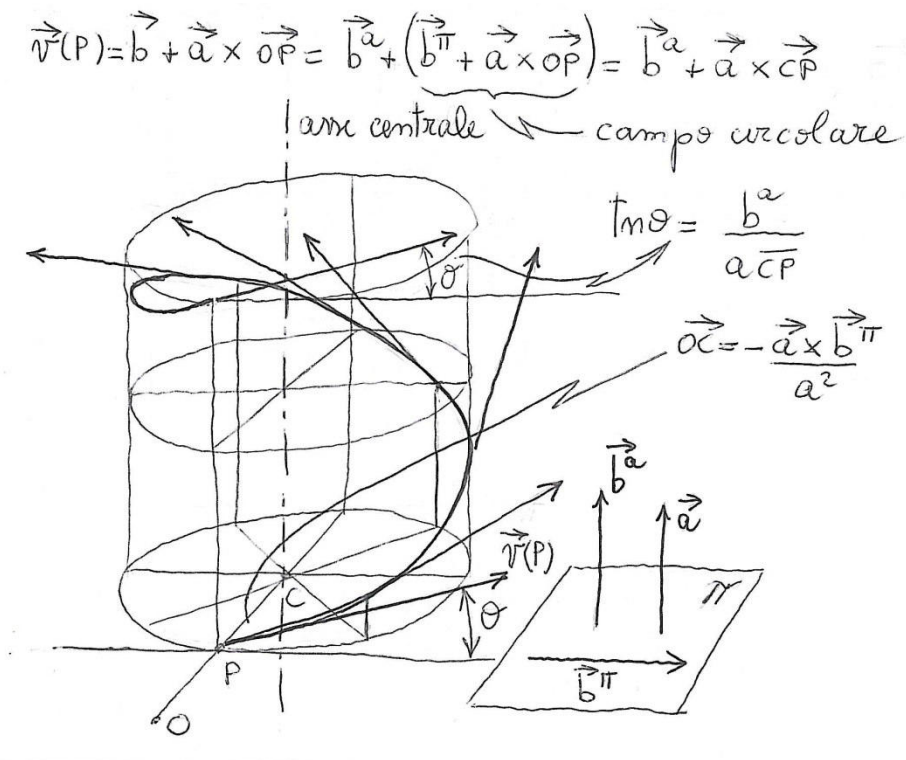 v⃗(P)=b⃗+a⃗×OP⃗=b⃗ᵃ+(b⃗^π+a⃗×OP⃗)=b⃗ᵃ+a⃗×CP⃗
asse centrale campo circolare
tnθ= bᵃ / a C̅P̅
θ
OC⃗=-a⃗×b⃗^π / a²
b⃗ᵃ
a⃗
v⃗(P)
π
C
θ
b⃗^π
P
O